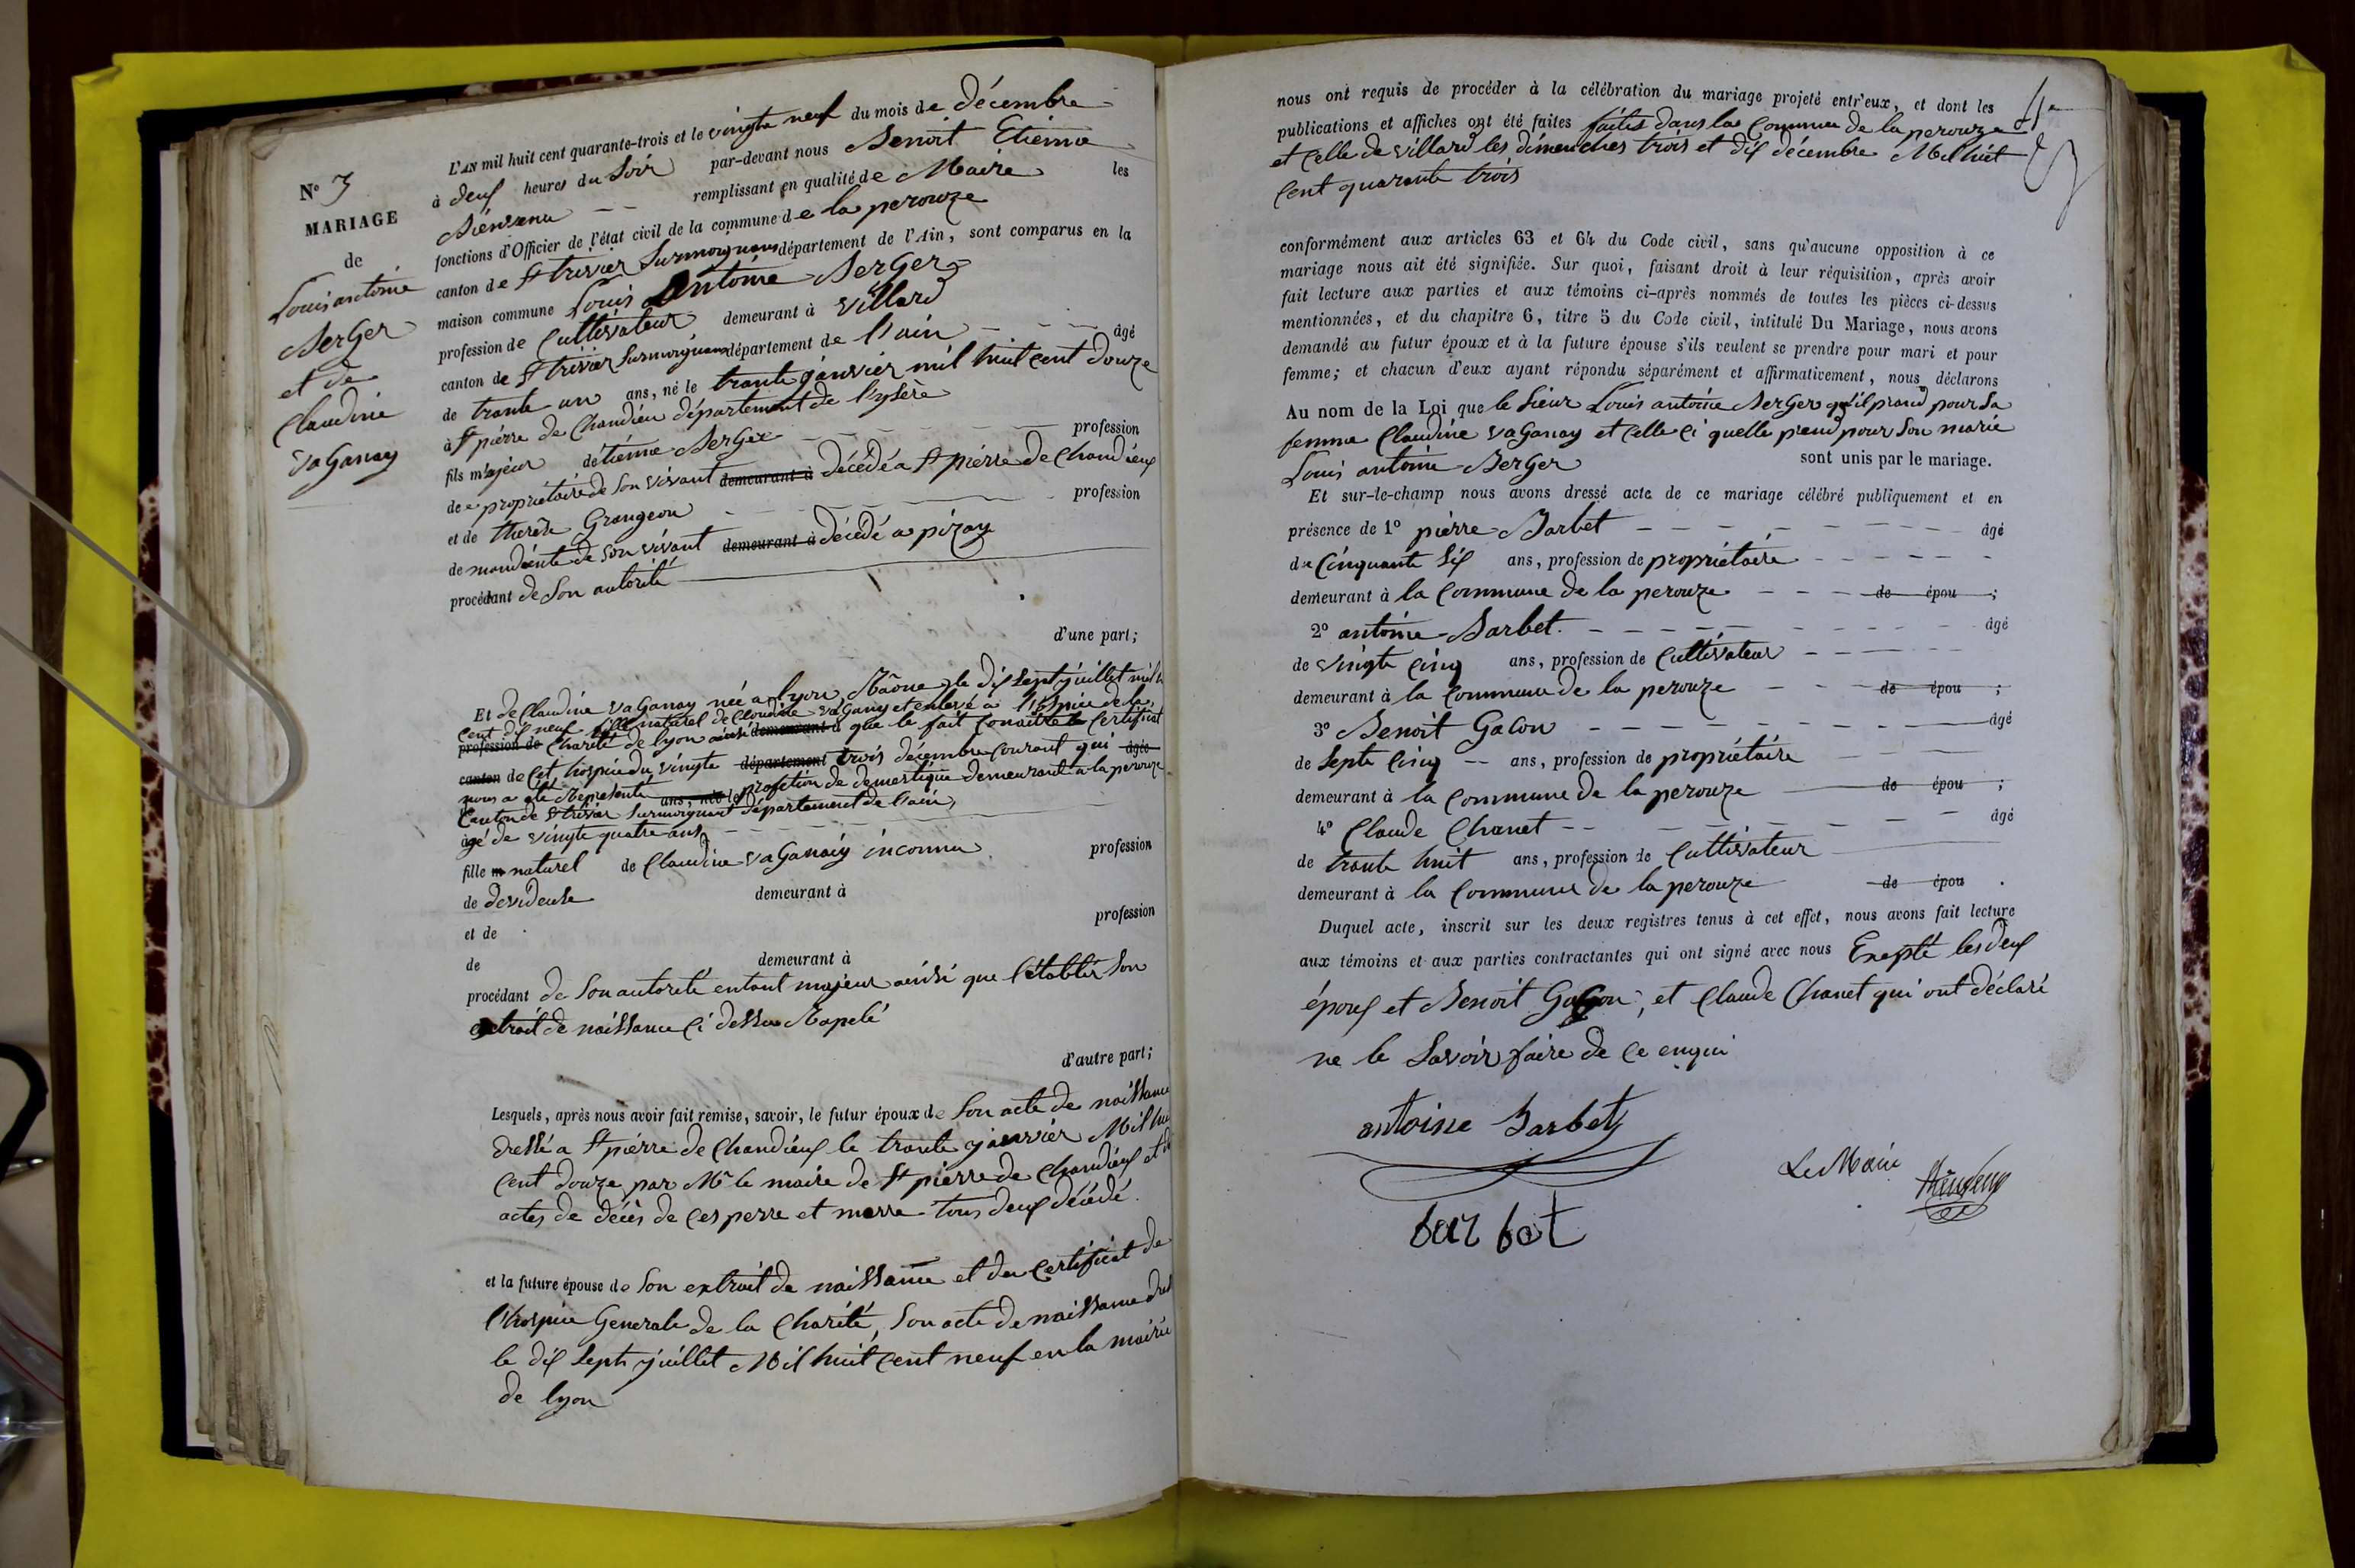 N° 7
MARIAGE
de
Louis antoine
Berger
et de
Claudine
vaGanay
L'AN mil huit cent quarante-trois et le vingte neuf du mois de décembre
à deux heures du Soir par-devant nous Benoit Etienne
Bienvenu remplissant en qualité de Maire les
fonctions d'Officier de l'état civil de la commune de la perouze
canton de St trivier Surmoignans département de l'Ain, sont comparus en la
maison commune Louis Antoine Berger
profession de Cultivateur demeurant à Villard
canton de St trivier Surmoignans département de l'ain âgé
de trante un ans, né le trante janvier mil huit cent douze
à St pierre de Chandieu département de l'ysère
fils majeur d'étienne Berger profession
de propriétaire de Son vivant demeurant à décédé a St pierre de Chandieux
et de therèse Grangeon profession
de mandiente de Son vivant demeurant à décédé a pizay
procédant de Son autorité
d'une part;
Et de Claudine vaGanay née a lyon Rhône le dix Sept juillet mil h
cent dix neuf fille naturel de Claudine vaGanay et enlevé a l'hospice de la
profession de Charité de lyon ainsi demeurant à que le fait Conaitre le Certificat
canton de Cet hospice du vingte département trois décembre Courant qui âgée
nous a été Représenté ans, née le profétion de domestique demeurant a la perouze
Canton de St trivier Surmoignant département de l'ain,
âgé de vingte quatre ans
fille m naturel de Claudine vaGanay inconnu profession
de devideuse demeurant à
et de profession
de demeurant à
procédant de Son autorité entant majeur ainsi que l'établir Son
extrait de naissance Ci dessus Rapelé
d'autre part;
Lesquels, après nous avoir fait remise, savoir, le futur époux de Son acte de naissance
dressé a St pierre de Chandieux le trante janvier Mil hui
Cent douze par Mr le maire de St pierre de Chandieux et d
actes de décès de Ces perre et merre tous deux décédé.
et la future épouse de Son extrait de naissance et du Certificat de
l'hospice Generale de la Charité, Son acte de naissance dres
le dix Sept juillet Mil huit Cent neuf en la mairie
de lyon
nous ont requis de procéder à la célébration du mariage projeté entr'eux, et dont les
publications et affiches ont été faites faites dans la Commune de la perouze
et Celle de villard les dimenches trois et dix décembre Mil huit
Cent quarante trois
conformément aux articles 63 et 64 du Code civil, sans qu'aucune opposition à ce
mariage nous ait été signifiée. Sur quoi, faisant droit à leur réquisition, après avoir
fait lecture aux parties et aux témoins ci-après nommés de toutes les pièces ci-dessus
mentionnées, et du chapitre 6, titre 5 du Code civil, intitulé Du Mariage, nous avons
demandé au futur époux et à la future épouse s'ils veulent se prendre pour mari et pour
femme; et chacun d'eux ayant répondu séparément et affirmativement, nous déclarons
Au nom de la Loi que le Sieur Louis antoine Berger qu'il prand pour Sa
femme Claudine vaGanay et Celle Ci quelle prend pour Son marie
Louis antoine Berger sont unis par le mariage.
Et sur-le-champ nous avons dressé acte de ce mariage célébré publiquement et en
présence de 1° pierre Barbet âgé
de Cinquante Six ans, profession de propriétaire
demeurant à la Commune de la perouze de épou ;
2° antoine Barbet. âgé
de vingte Cinq ans, profession de Cultivateur
demeurant à la Commune de la perouze de épou ;
3° Benoit Gacon âgé
de Septe Cinq ans, profession de propriétaire
demeurant à la Commune de la perouze de épou ;
4° Claude Chanet âgé
de trante huit ans, profession de Cultivateur
demeurant à la Commune de la perouze de épou .
Duquel acte, inscrit sur les deux registres tenus à cet effet, nous avons fait lecture
aux témoins et aux parties contractantes qui ont signé avec nous Exepté les deux
époux et Benoit Gacon, et Claude Chanet qui ont déclaré
ne le Savoir faire de Ce enqui
antoine Barbet
Le Maire
barbet